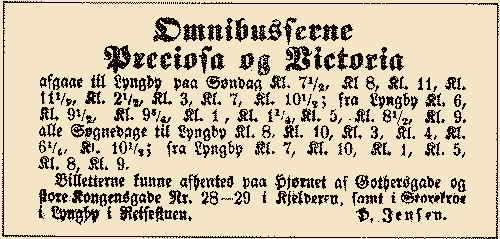 Omnibusserne
Preciosa og Victoria
afgaae til Lyngby paa Søndag Kl. 7½, Kl 8, Kl. 11, Kl.
11½, Kl. 2½, Kl. 3, Kl. 7, Kl. 10½; fra Lyngby Kl. 6,
Kl. 9½, Kl. 9¾, Kl. 1, Kl. 1¼, Kl. 5, Kl. 8½, Kl. 9.
alle Søgnedage til Lyngby Kl. 8, Kl. 10, Kl. 3, Kl. 4, Kl.
6¼, Kl. 10½; fra Lyngby Kl. 7, Kl. 10, Kl. 1, Kl. 5,
Kl. 8, Kl. 9.
Billetterne kunne afhentes paa Hjørnet af Gothersgade og
store Kongensgade Nr. 28—29 i Kjelderen, samt i Storekro
i Lyngby i Reisestuen. H. Jensen.